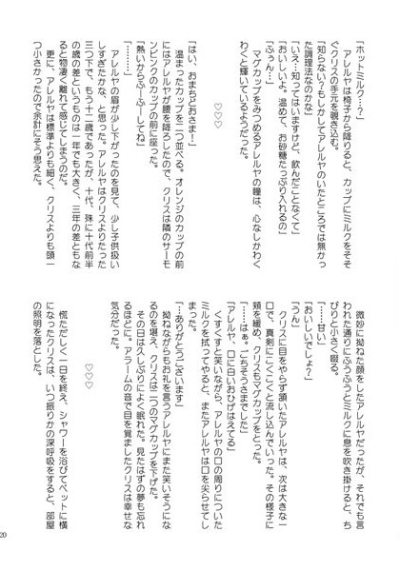 「ホットミルク…？」
アレルヤは椅子から降りると、カップにミルクをそそ
ぐクリスの手元を覗き込む。
「知らない？もしかしてアレルヤのいたところでは無かっ
た調理法なのかな」
「いえ…知ってはいますけど、飲んだことなくて」
「おいしいよ。温めて、お砂糖たっぷり入れるの」
「ふぅん…」
マグカップをみつめるアレルヤの瞳は、心なしかわく
わくと輝いているようだった。
♡♡♡
「はい、おまちどおさまー」
温まったカップを二つ並べる。オレンジのカップの前
にはアレルヤが腰を降ろしたので、クリスは隣のサーモ
ンピンクのカップの前に座った。
「熱いからふーふーしてね」
アレルヤの眉が少し下がったのを見て、少し子供扱い
しすぎたかな、と思った。アレルヤはクリスよりたった
三つ下で、もう十二歳であったが、十代、殊に十代前半
の歳の差というものは一年でも大きく、三年の差ともな
ると物凄く離れて感じてしまうのだ。
更に、アレルヤは標準よりも細く、クリスよりも頭一
つ小さかったので余計にそう思えた。
微妙に拗ねた顔をしたアレルヤだったが、それでも言
われた通りにふうふうとミルクに息を吹き掛けると、ち
びりと小さく啜る。
「……甘い」
「おいしいでしょ？」
「うん」
クリスに目をやらず頷いたアレルヤは、次は大きな一
口で、真剣にこくこくと流し込んでいった。その様子に
頬を緩め、クリスもマグカップをとった。
「……はぁ。ごちそうさまでした」
「アレルヤ、口に白いおひげはえてる」
くすくすと笑いながら、アレルヤの口の周りについた
ミルクを拭ってやると、またアレルヤは口を尖らせてし
まう。
「…ありがとうございます」
拗ねながらもお礼を言うアレルヤにまた笑いそうにな
るのを堪え、クリスは二つのマグカップを下げた。
その日は久しぶりによく眠れた。見たはずの夢も忘れ
るほどに。アラームの音で目を覚ましたクリスは幸せな
気分だった。
♡♡♡
慌ただしく一日を終え、シャワーを浴びてベットに横
になったクリスは、いつ振りかの深呼吸をすると、部屋
の照明を落とした。
20